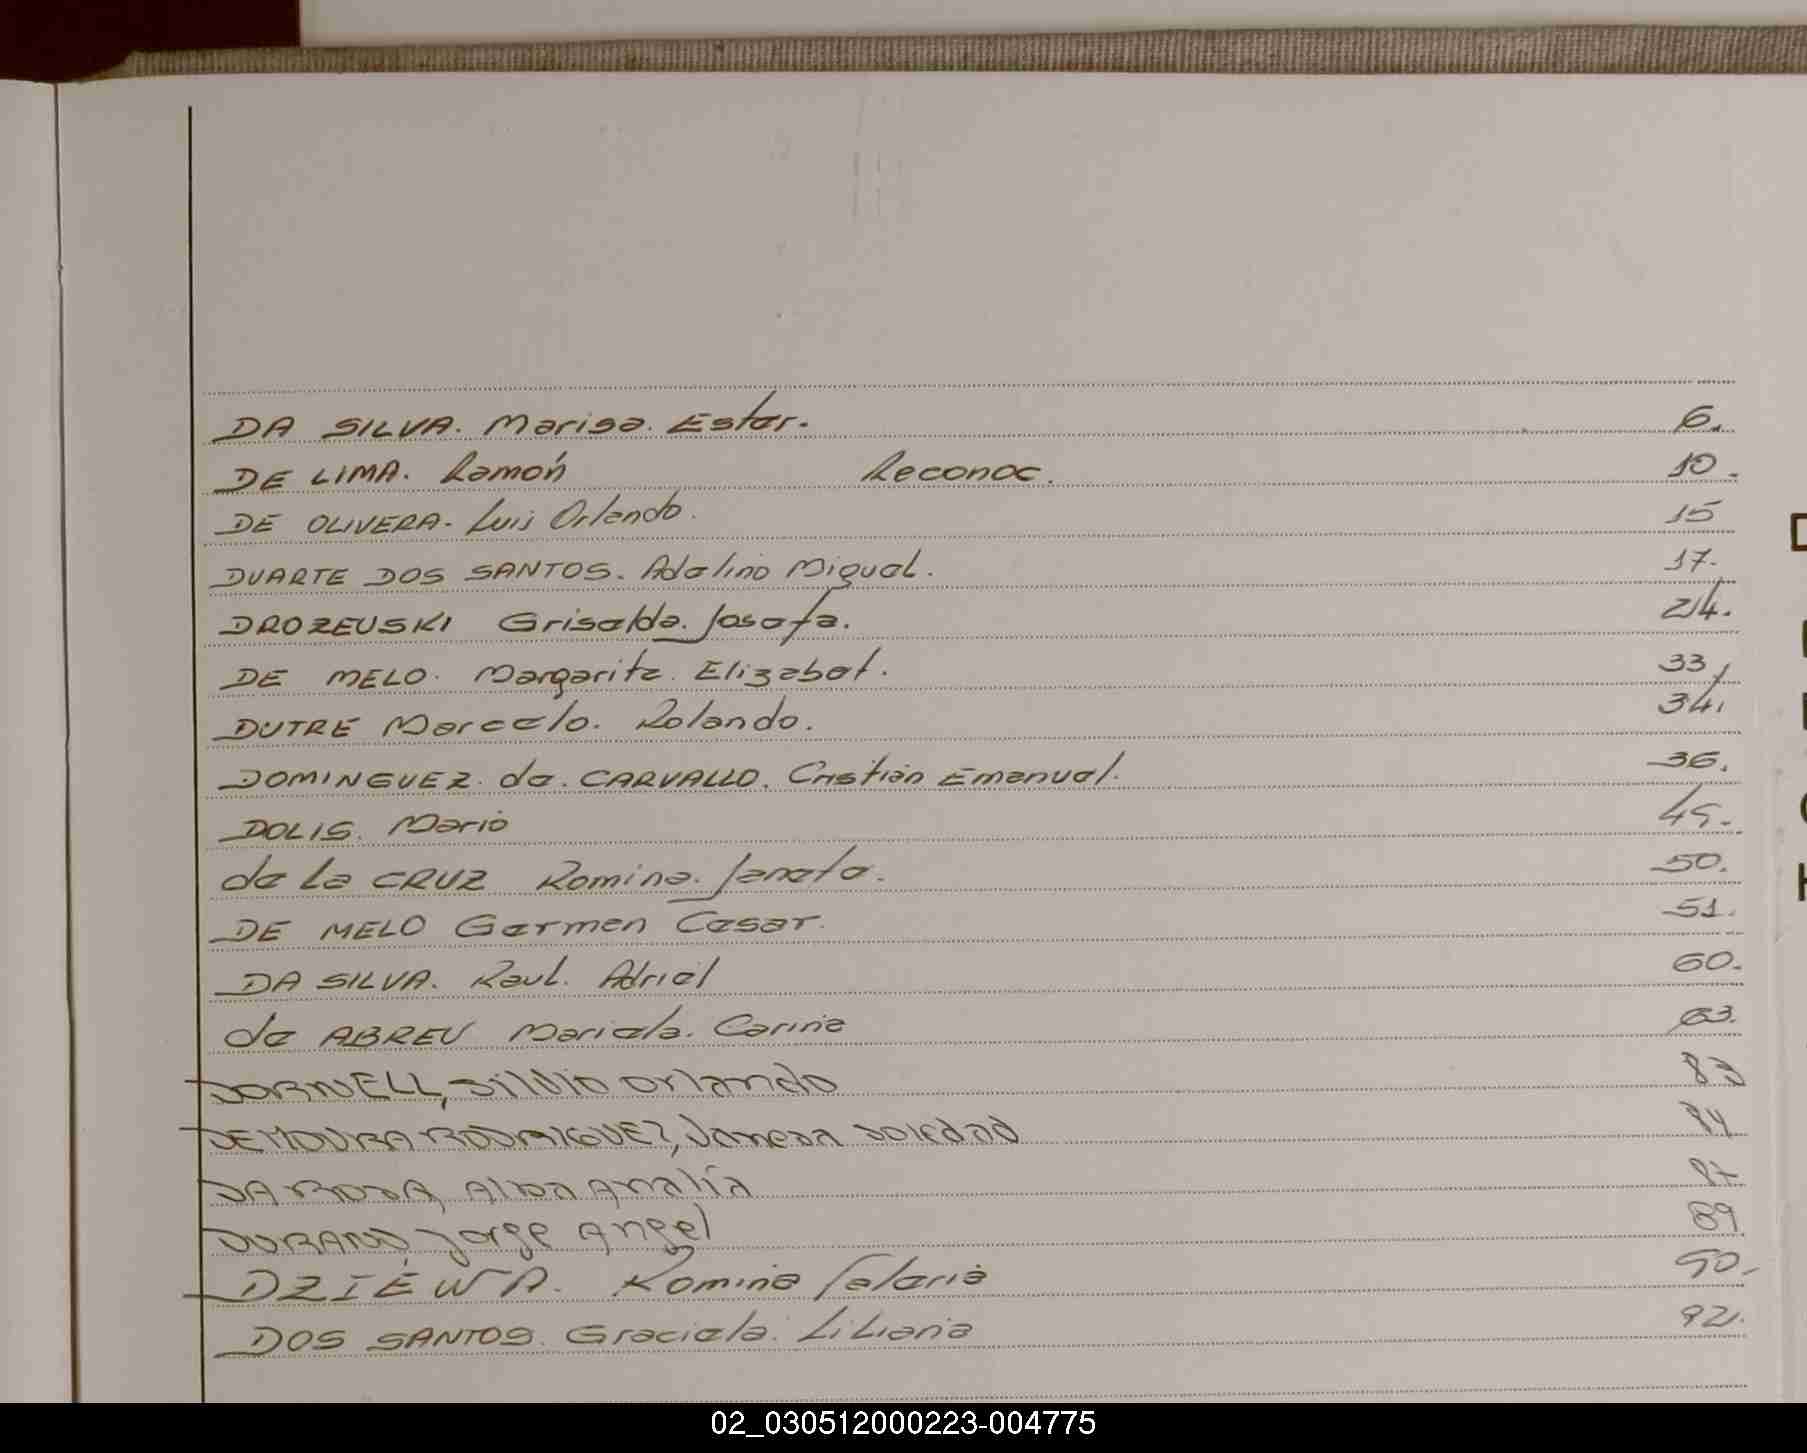 DA SILVA. Marisa. Ester. 6.
DE LIMA. Ramón Reconoc. 10.
DE OLIVERA. Luis Orlando. 15
DUARTE DOS SANTOS. Adelino Miguel. 17.
DROZEUSKI Griselda. Josefa. 24.
DE MELO. Margarita. Elizabet. 33,
DUTRE Marcelo. Rolando. 34,
DOMINGUEZ. de. CARVALLO. Cristián Emanuel. 36.
DOLIS. Mario 49.
de la CRUZ Romina. 50.
DE MELO Germen Cesar. 51.
DA SILVA. Raul. Adriel 60.
de ABREU Mariela. Carina 63.
DORNELL, Silvio Orlando 83
DE MOURA RODRIGUEZ, Soledad 84
DA ROSA, Alba Analía 87
DURAND Jorge Angel 89
DZIEWA. Romina 90.
DOS SANTOS. Graciela. Liliana 92.
02_030512000223-004775